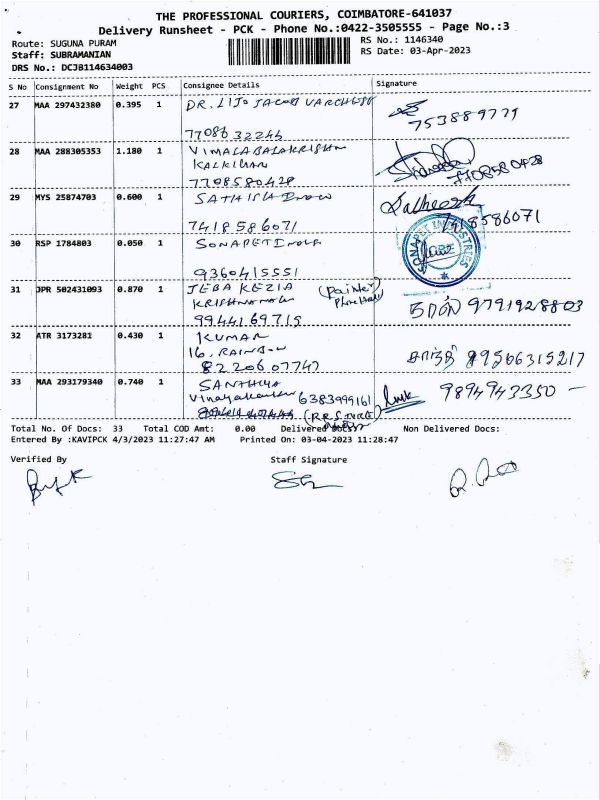 THE PROFESSIONAL COURIERS, COIMBATORE-641037
Delivery Runsheet - PCK - Phone No.:0422-3505555 - Page No.:3
Route: SUGUNA PURAM
RS No.: 1146340
Staff: SUBRAMANIAN
RS Date: 03-Apr-2023
DRS No.: DCJB114634003
S No Consignment No Weight PCS Consignee Details Signature
27 MAA 297432380 0.395 1 DR. LIJO JACOB
753889771
77086 32244
28 MAA 288305353 1.180 1 VIMALABALAKRISHN
KALKIMAN
7708580428
7708580428
29 MYS 25874703 0.600 1 SATHISH
Satheesh
7418586071
7418586071
30 RSP 1784803 0.050 1 SONAPET INDIA
SONAPET INDUSTRIES
CBE
9360415551
31 JPR 502431093 0.870 1 JEBA KEZIA (Painter
KRISHNA
9944169715
9791928803
32 ATR 3173281 0.430 1 KUMAR
16, RAINBOW
சாந்தி 89566315217
8220607747
33 MAA 293179340 0.740 1 SANTHIYA
6383999161
9894943350
Total No. Of Docs: 33 Total COD Amt: 0.00 Delivered Docs: Non Delivered Docs:
Entered By :KAVIPCK 4/3/2023 11:27:47 AM Printed On: 03-04-2023 11:28:47
Verified By Staff Signature